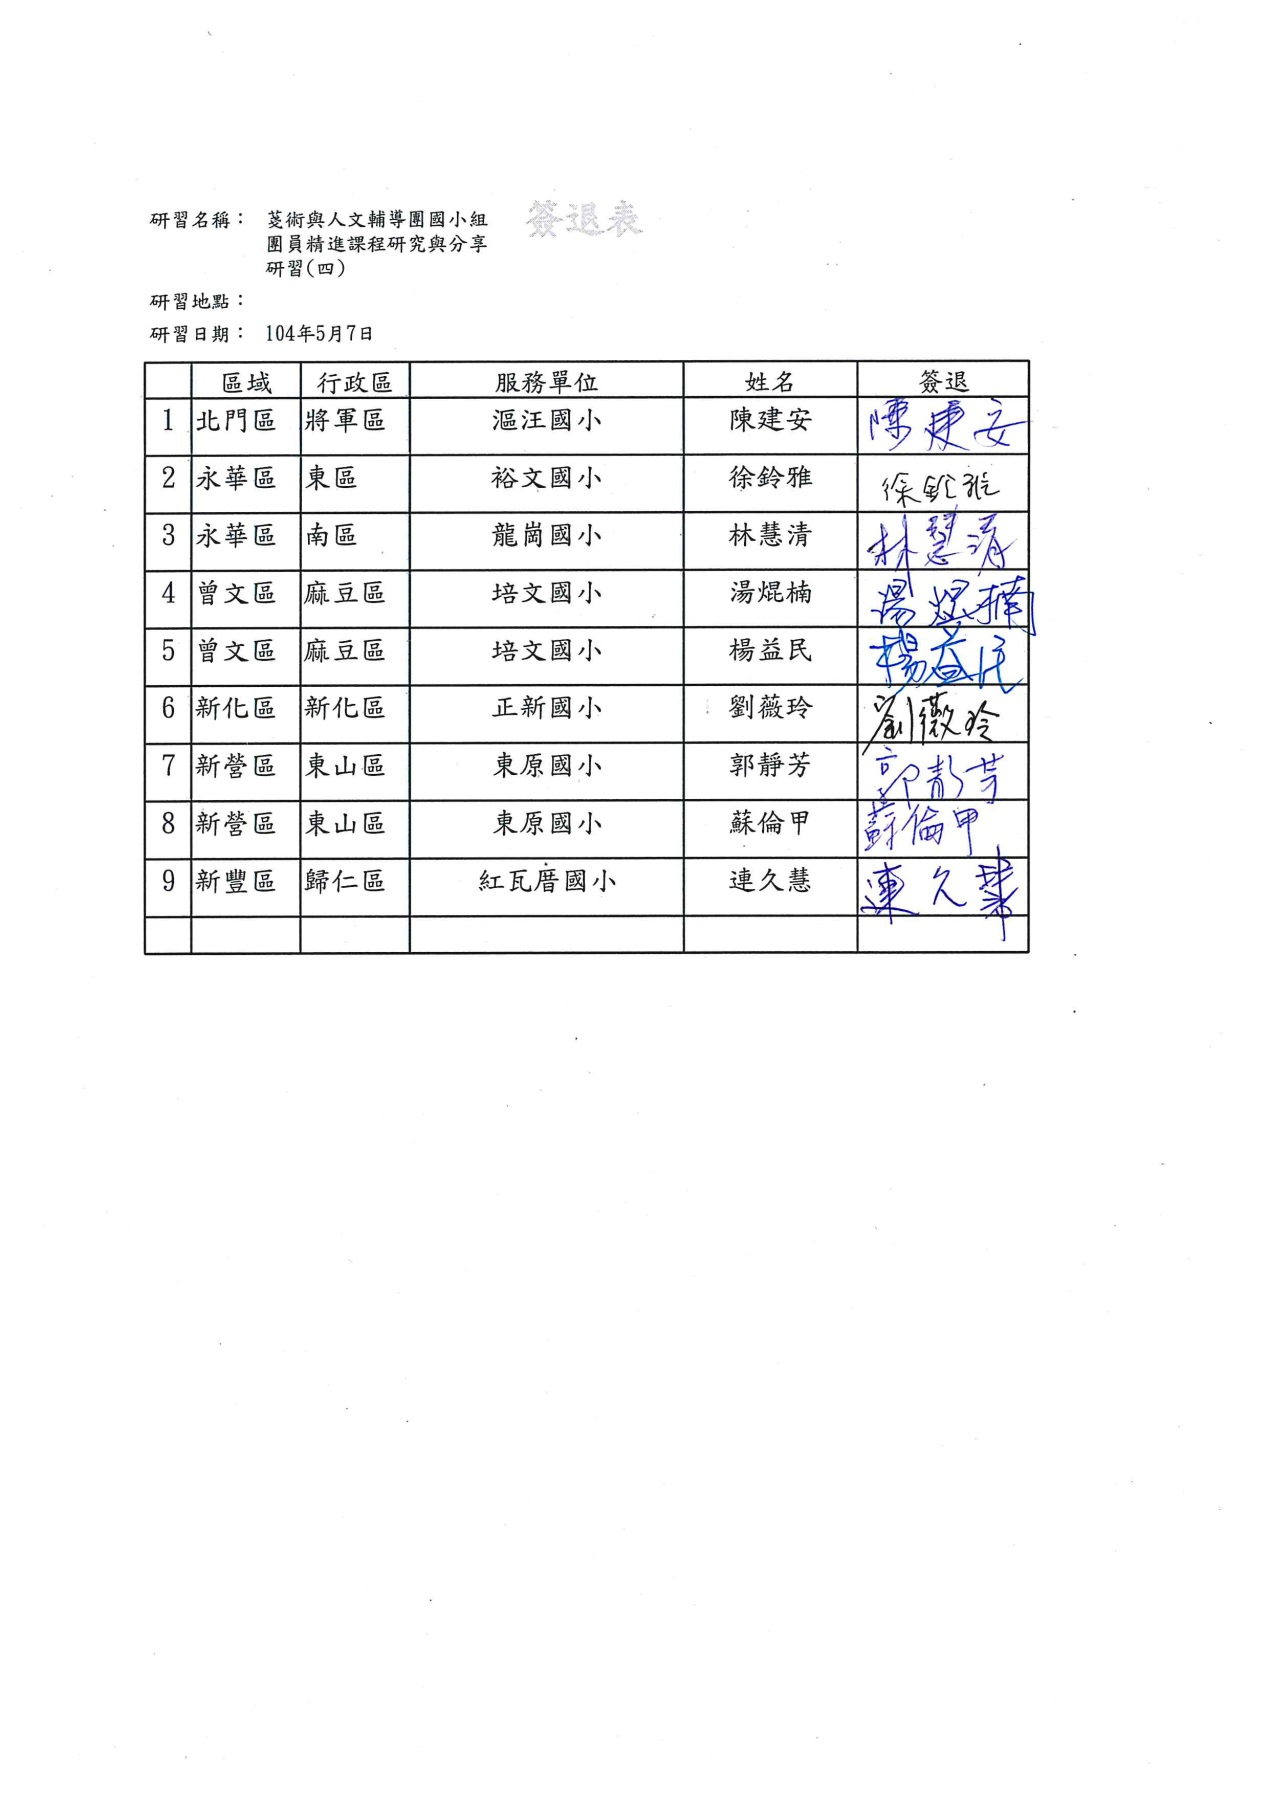 簽退表
研習名稱： 藝術與人文輔導團國小組
團員精進課程研究與分享
研習(四)
研習地點：
研習日期： 104年5月7日
區域 行政區 服務單位 姓名 簽退
1 北門區 將軍區 漚汪國小 陳建安 陳建安
2 永華區 東區 裕文國小 徐鈴雅 徐鈴雅
3 永華區 南區 龍崗國小 林慧清 林慧清
4 曾文區 麻豆區 培文國小 湯焜楠 湯焜楠
5 曾文區 麻豆區 培文國小 楊益民 楊益民
6 新化區 新化區 正新國小 劉薇玲 劉薇玲
7 新營區 東山區 東原國小 郭靜芳 郭靜芳
8 新營區 東山區 東原國小 蘇倫甲 蘇倫甲
9 新豐區 歸仁區 紅瓦厝國小 連久慧 連久慧